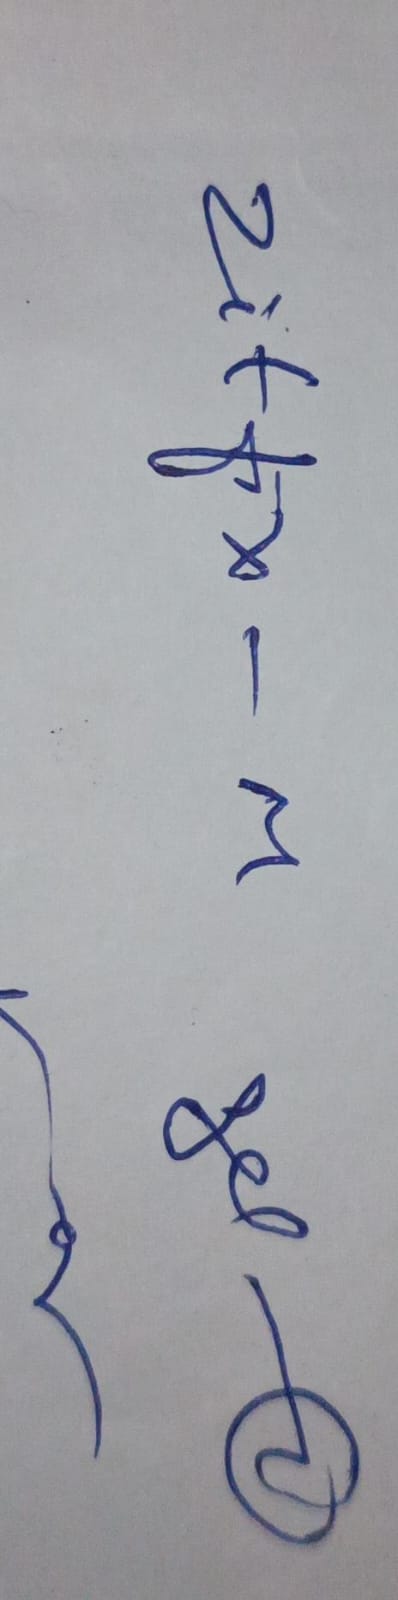 Zitfx - M gel - ①